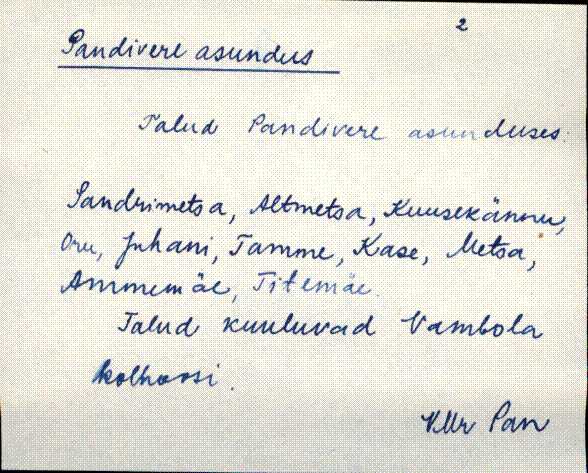 2
Pandivere asundus
Talud Pandivere asunduses:
Sandrimetsa, Altmetsa, Kuusekännu,
Oru, Juhani, Tamme, Kase, Metsa,
Ammemäe, Titemäe.
Talud kuuluvad Vambola
kolhoosi.
VMr Pan